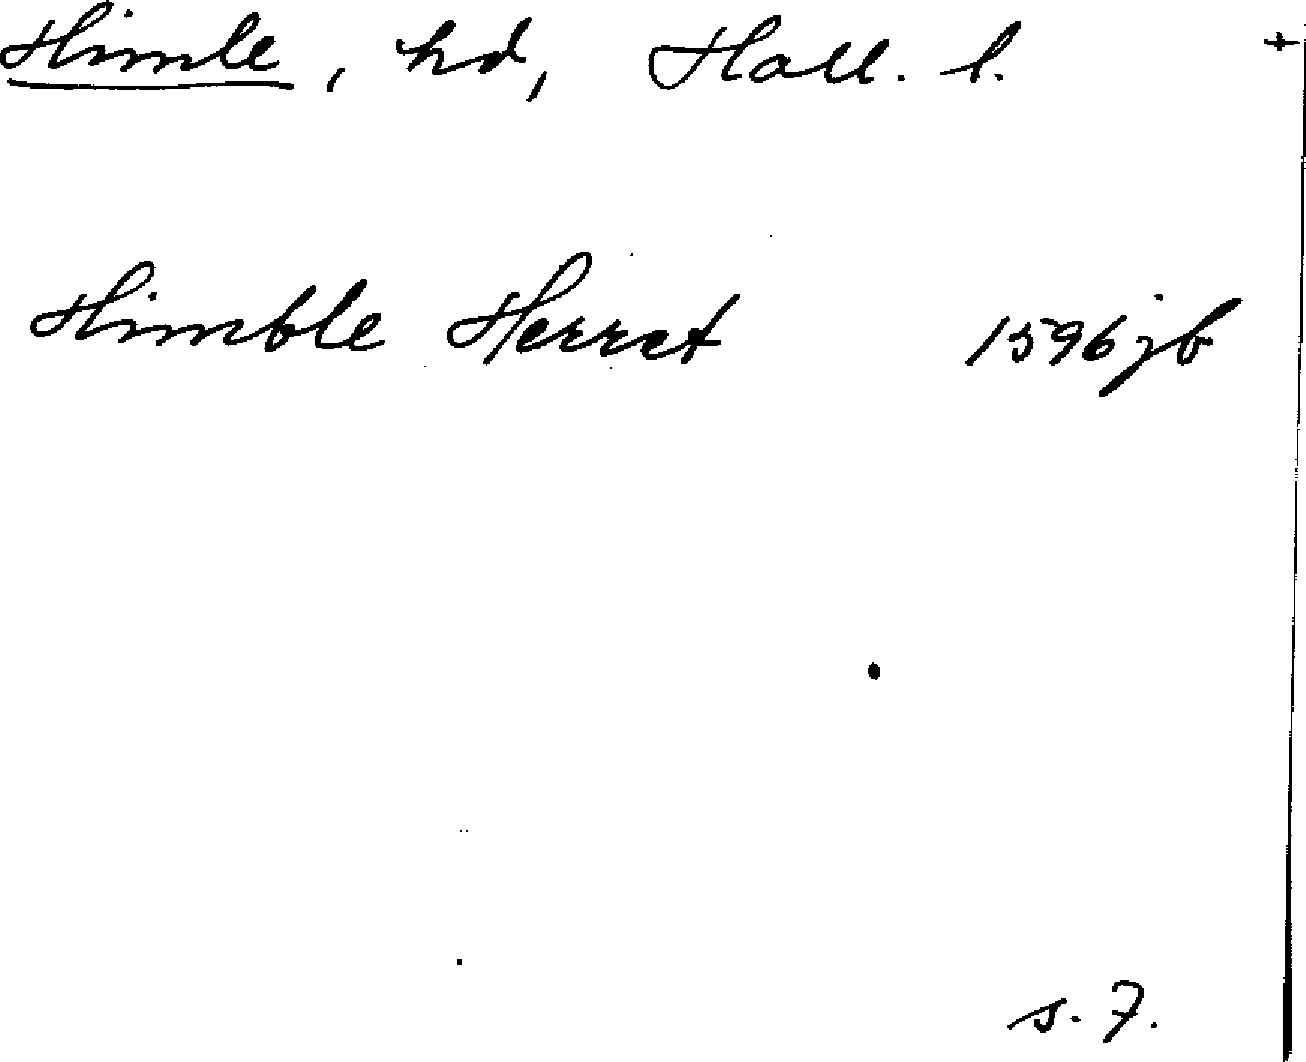 Himle, hd, Hall. l. +
Himble Herret 1596 jb
s. 7.